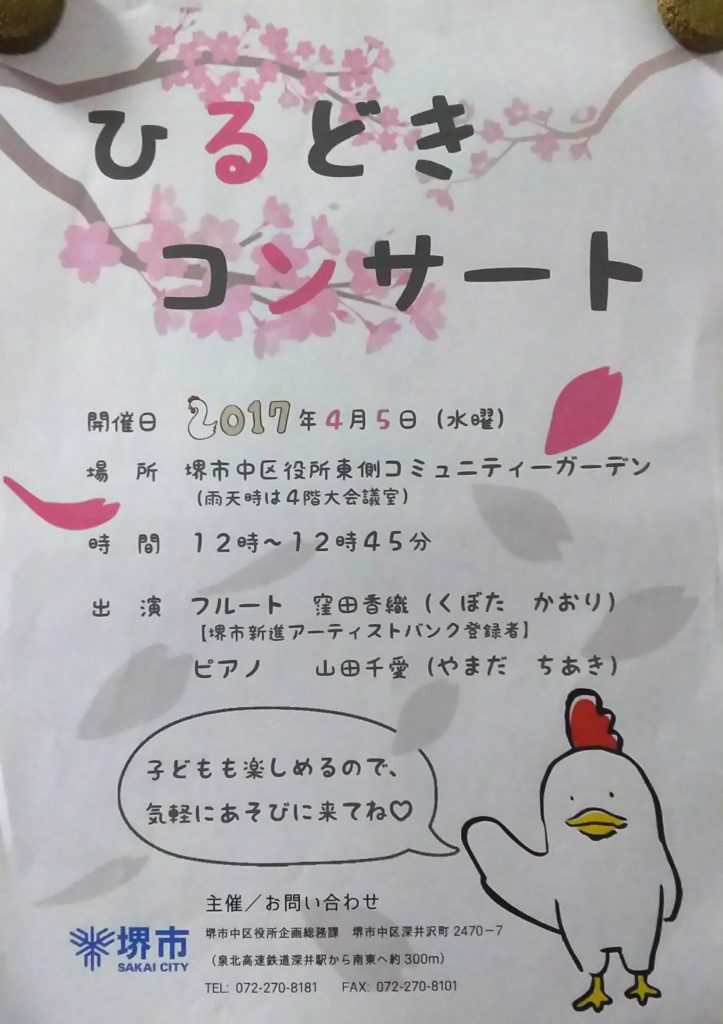 ひるどき
コンサート
開催日 2017年4月5日（水曜）
場 所 堺市中区役所東側コミュニティーガーデン
（雨天時は４階大会議室）
時 間 １２時～１２時４５分
出 演 フルート 窪田香織（くぼた かおり）
【堺市新進アーティストバンク登録者】
ピアノ 山田千愛（やまだ ちあき）
子どもも楽しめるので、
気軽にあそびに来てね♡
主催／お問い合わせ
堺市中区役所企画総務課 堺市中区深井沢町 2470－7
（泉北高速鉄道深井駅から南東へ約 300m）
TEL: 072-270-8181 FAX: 072-270-8101
堺市
SAKAI CITY